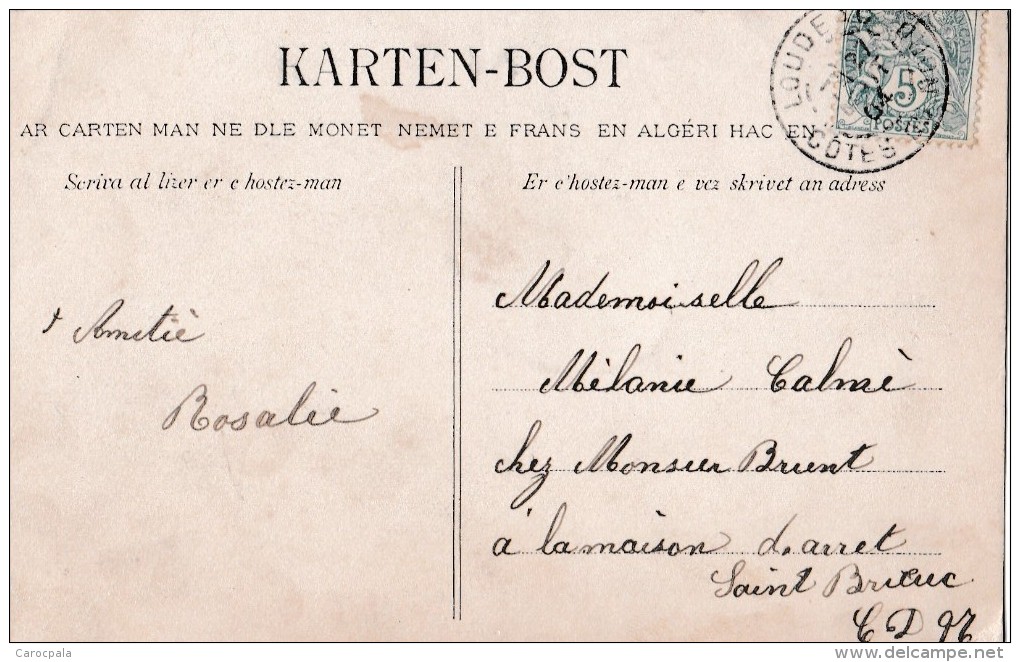 KARTEN-BOST
AR CARTEN MAN NE DLE MONET NEMET E FRANS EN ALGÉRI HAC EN
Scriva al lizer er c hostez-man
Er c'hostez-man e vez skrivet an adress
Amitiè
Rosalie
Mademoiselle
Mèlanie Calmè
chez Monsieur Brient
à la maison d'arret
Saint Brieuc
C D N
LOUDEAC
COTES DU N
5
POSTES
Carocpala
www.delcampe.net